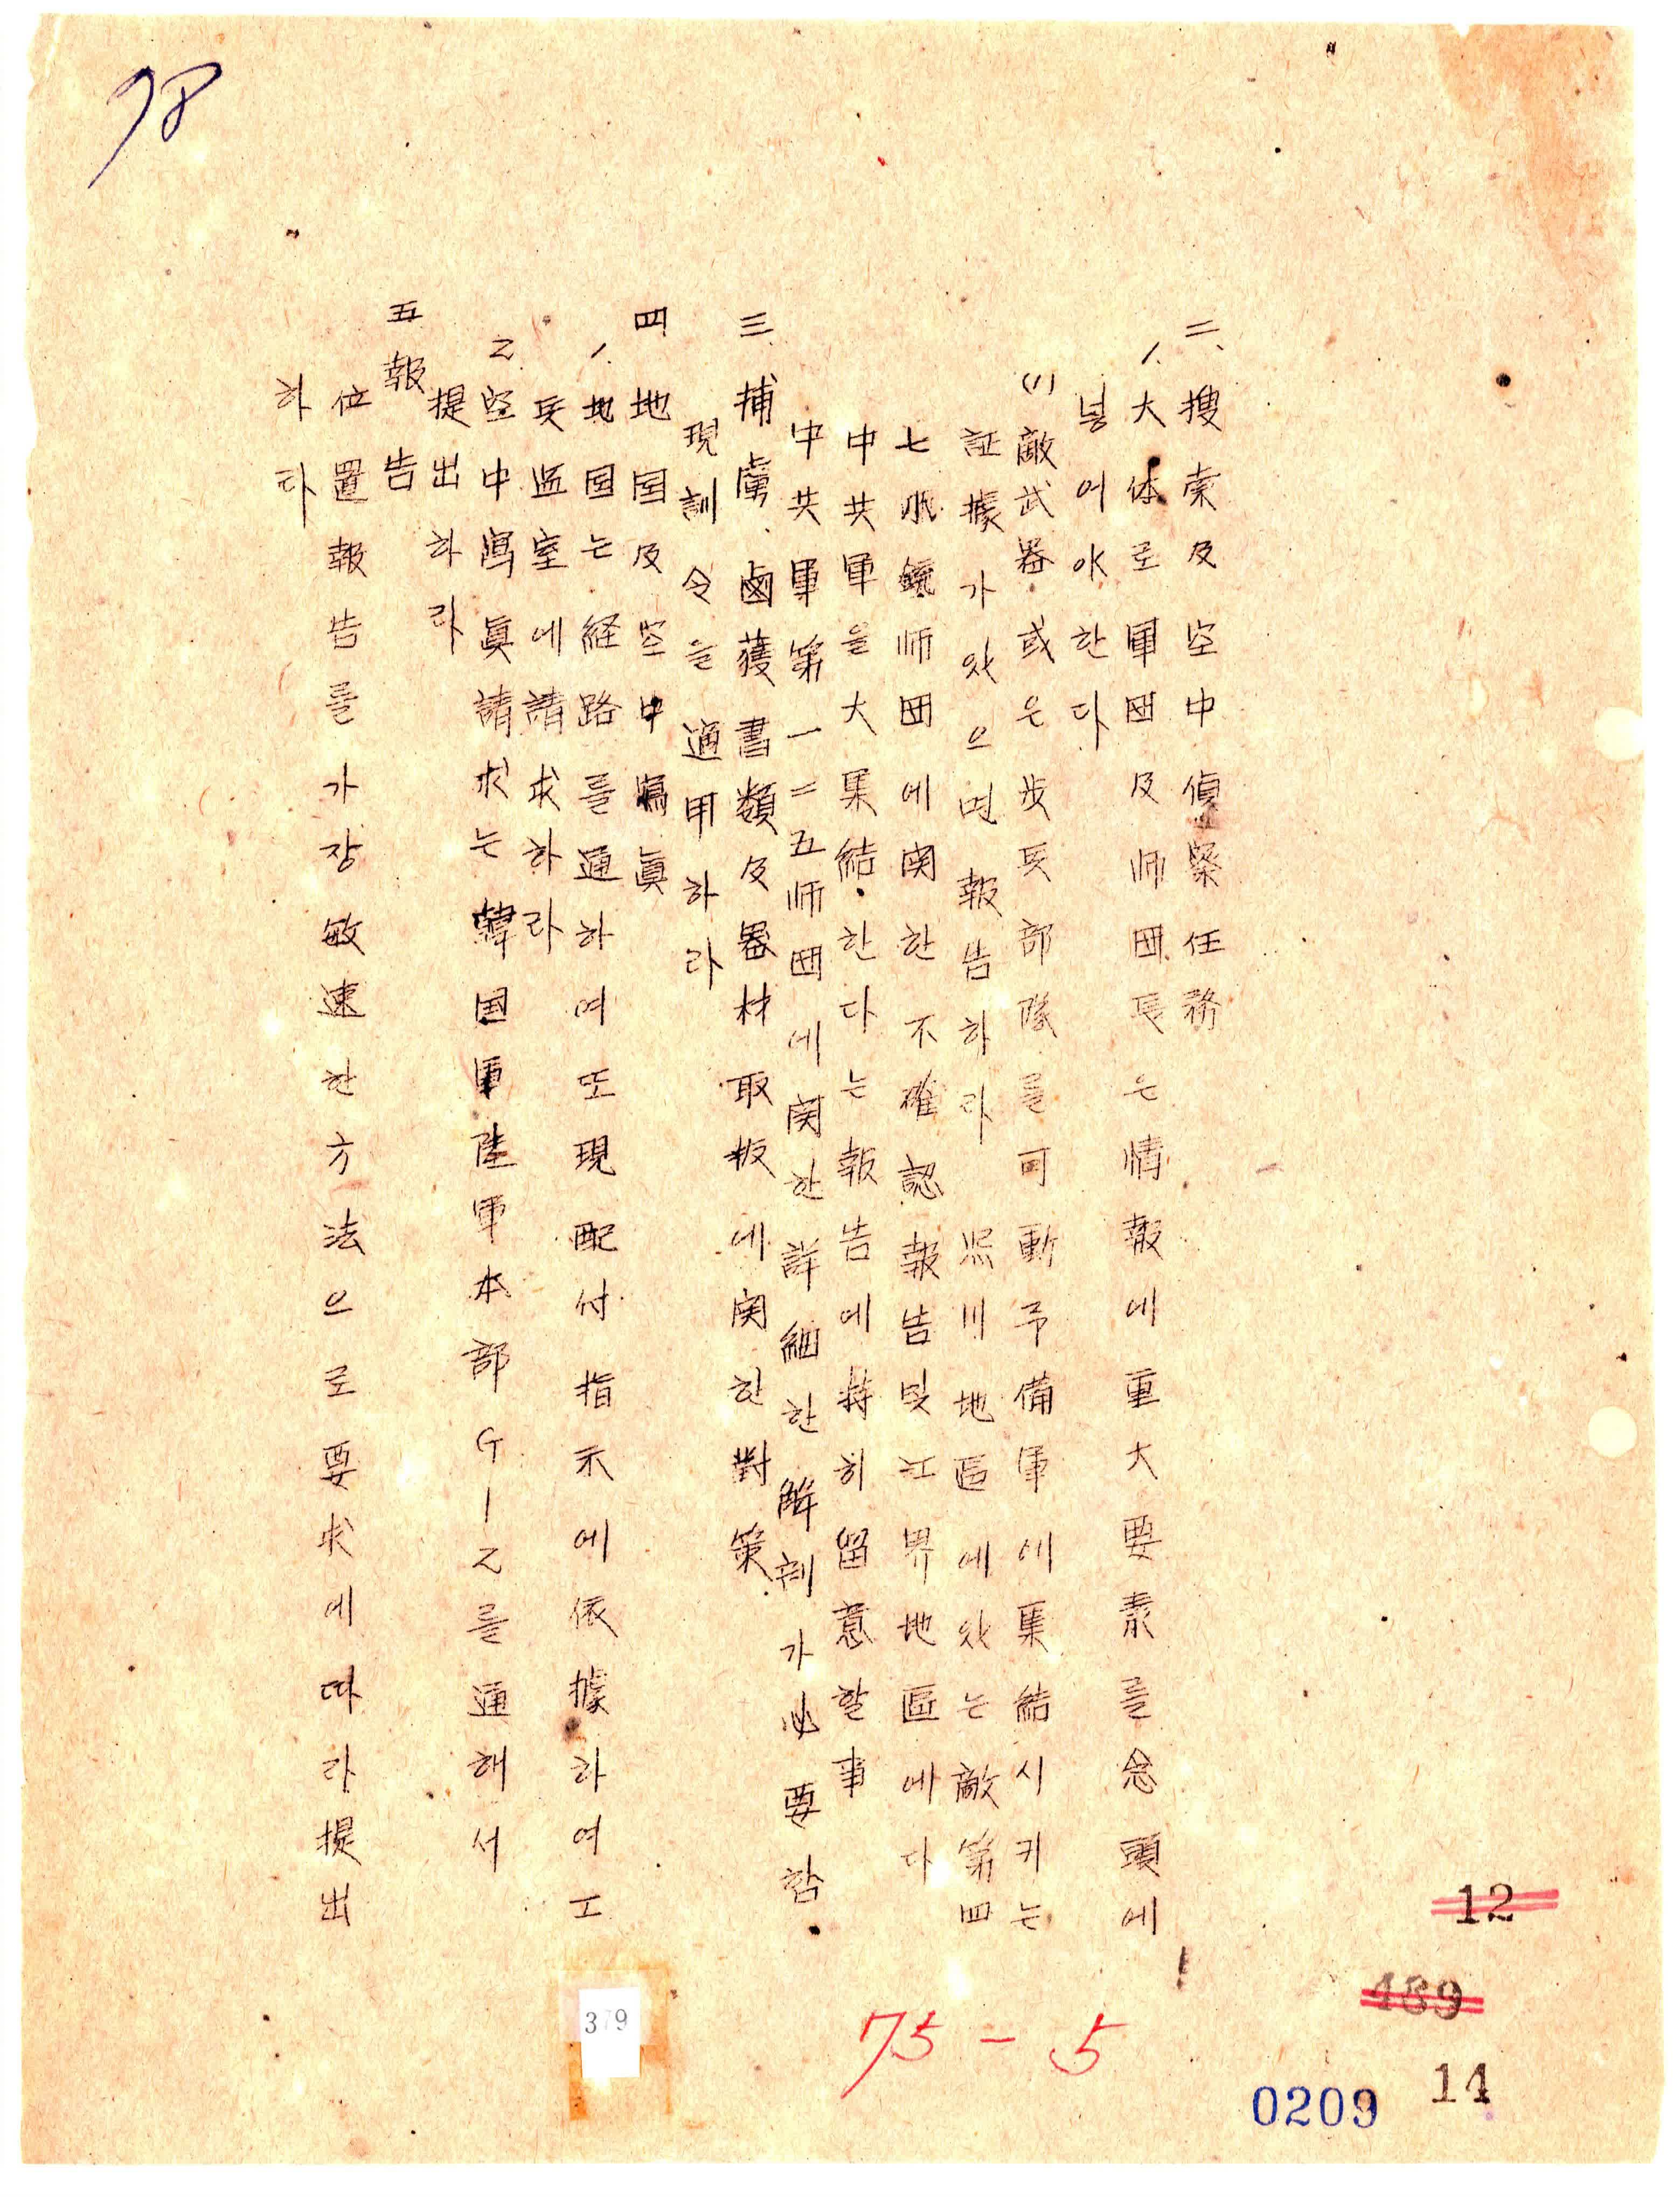 98
二、搜索及空中偵察任務
1. 大体로 軍団及师団長은 情報에 重大要素를 念頭에
넣어야 한다
(1) 敵武器 或은 步兵部隊를 可動予備軍에 集結시키는
証據가 있으면 報告하라 熙川地區에 있는 敵第四
七 师団에 関한 不確認報告 및 江界地區에다
中共軍을 大集結한다는 報告에 特히 留意할 事
中共軍第一二五师団에 関한 詳細한 解剖가 必要함.
三. 捕虜 鹵獲書類及器材取扱에 関한 對策
現訓令을 適用하라
四. 地国及空中寫眞
1. 地国는 経路를 通하여 또 現配付指示에 依據하여 工
兵监室에 請求하라
2. 空中寫眞請求는 韓国軍陸軍本部 G-2를 通해서
提出하라
五. 報告
位置報告를 가장 敏速한 方法으로 要求에 따라 提出
하라
12
489
14
0209
75-5
379